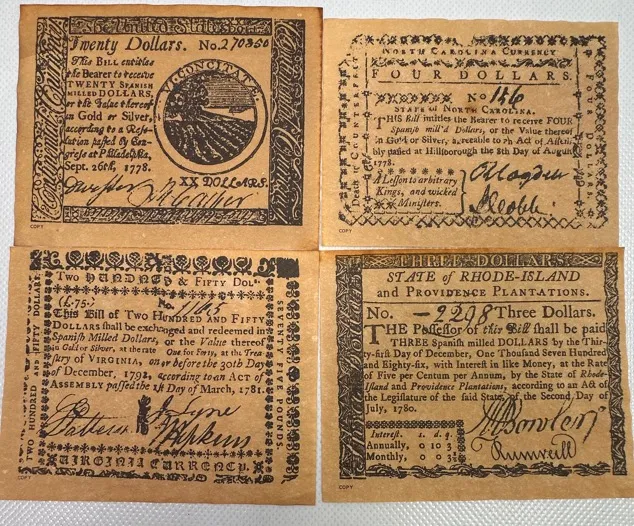 The United States
Twenty Dollars. No. 270850
This BILL entitles
the Bearer to receive
TWENTY SPANISH
MILLED DOLLARS,
or the Value thereof
in Gold or Silver,
according to a Reso-
lution passed by Con-
gress at Philadelphia,
Sept. 26th, 1778.
VI CONCITATÆ.
XX DOLLARS.
COPY
NORTH CAROLINA CURRENCY
FOUR DOLLARS.
No 156
STATE of NORTH CAROLINA.
THIS Bill intitles the Bearer to receive FOUR
Spanish mill'd Dollars, or the Value thereof
in Gold or Silver, agreeable to an Act of Assem-
bly passed at Hillsborough the 8th Day of August
1778.
A Lesson to arbitrary
Kings, and wicked
Ministers.
Death to Counterfeit
FOUR DOLLARS.
COPY
Two HUNDRED & FIFTY Dol
(£.75.)
No.
This Bill of Two HUNDRED AND FIFTY
DOLLARS shall be exchanged and redeemed in
Spanish Milled Dollars, or the Value thereof
in Gold or Silver, at the rate One for Forty, at the Trea-
sury of VIRGINIA, on or before the 30th Day
of December, 1792, according to an ACT of
ASSEMBLY passed the 1st Day of March, 1781.
TWO HUNDRED AND FIFTY DOLLARS
SEVENTY FIVE POUNDS
VIRGINIA CURRENCY.
COPY
THREE DOLLARS.
STATE of RHODE-ISLAND
and PROVIDENCE PLANTATIONS.
No. 2298 Three Dollars.
THE Possessor of this Bill shall be paid
THREE Spanish milled DOLLARS by the Thir-
ty-first Day of December, One Thousand Seven Hundred
and Eighty-six, with Interest in like Money, at the Rate
of Five per Centum per Annum, by the State of Rhode-
Island and Providence Plantations, according to an Act of
the Legislature of the said State, of the Second Day of
July, 1780.
Interest. s. d. q.
Annually, 0 10 3
Monthly, 0 0 3
COPY